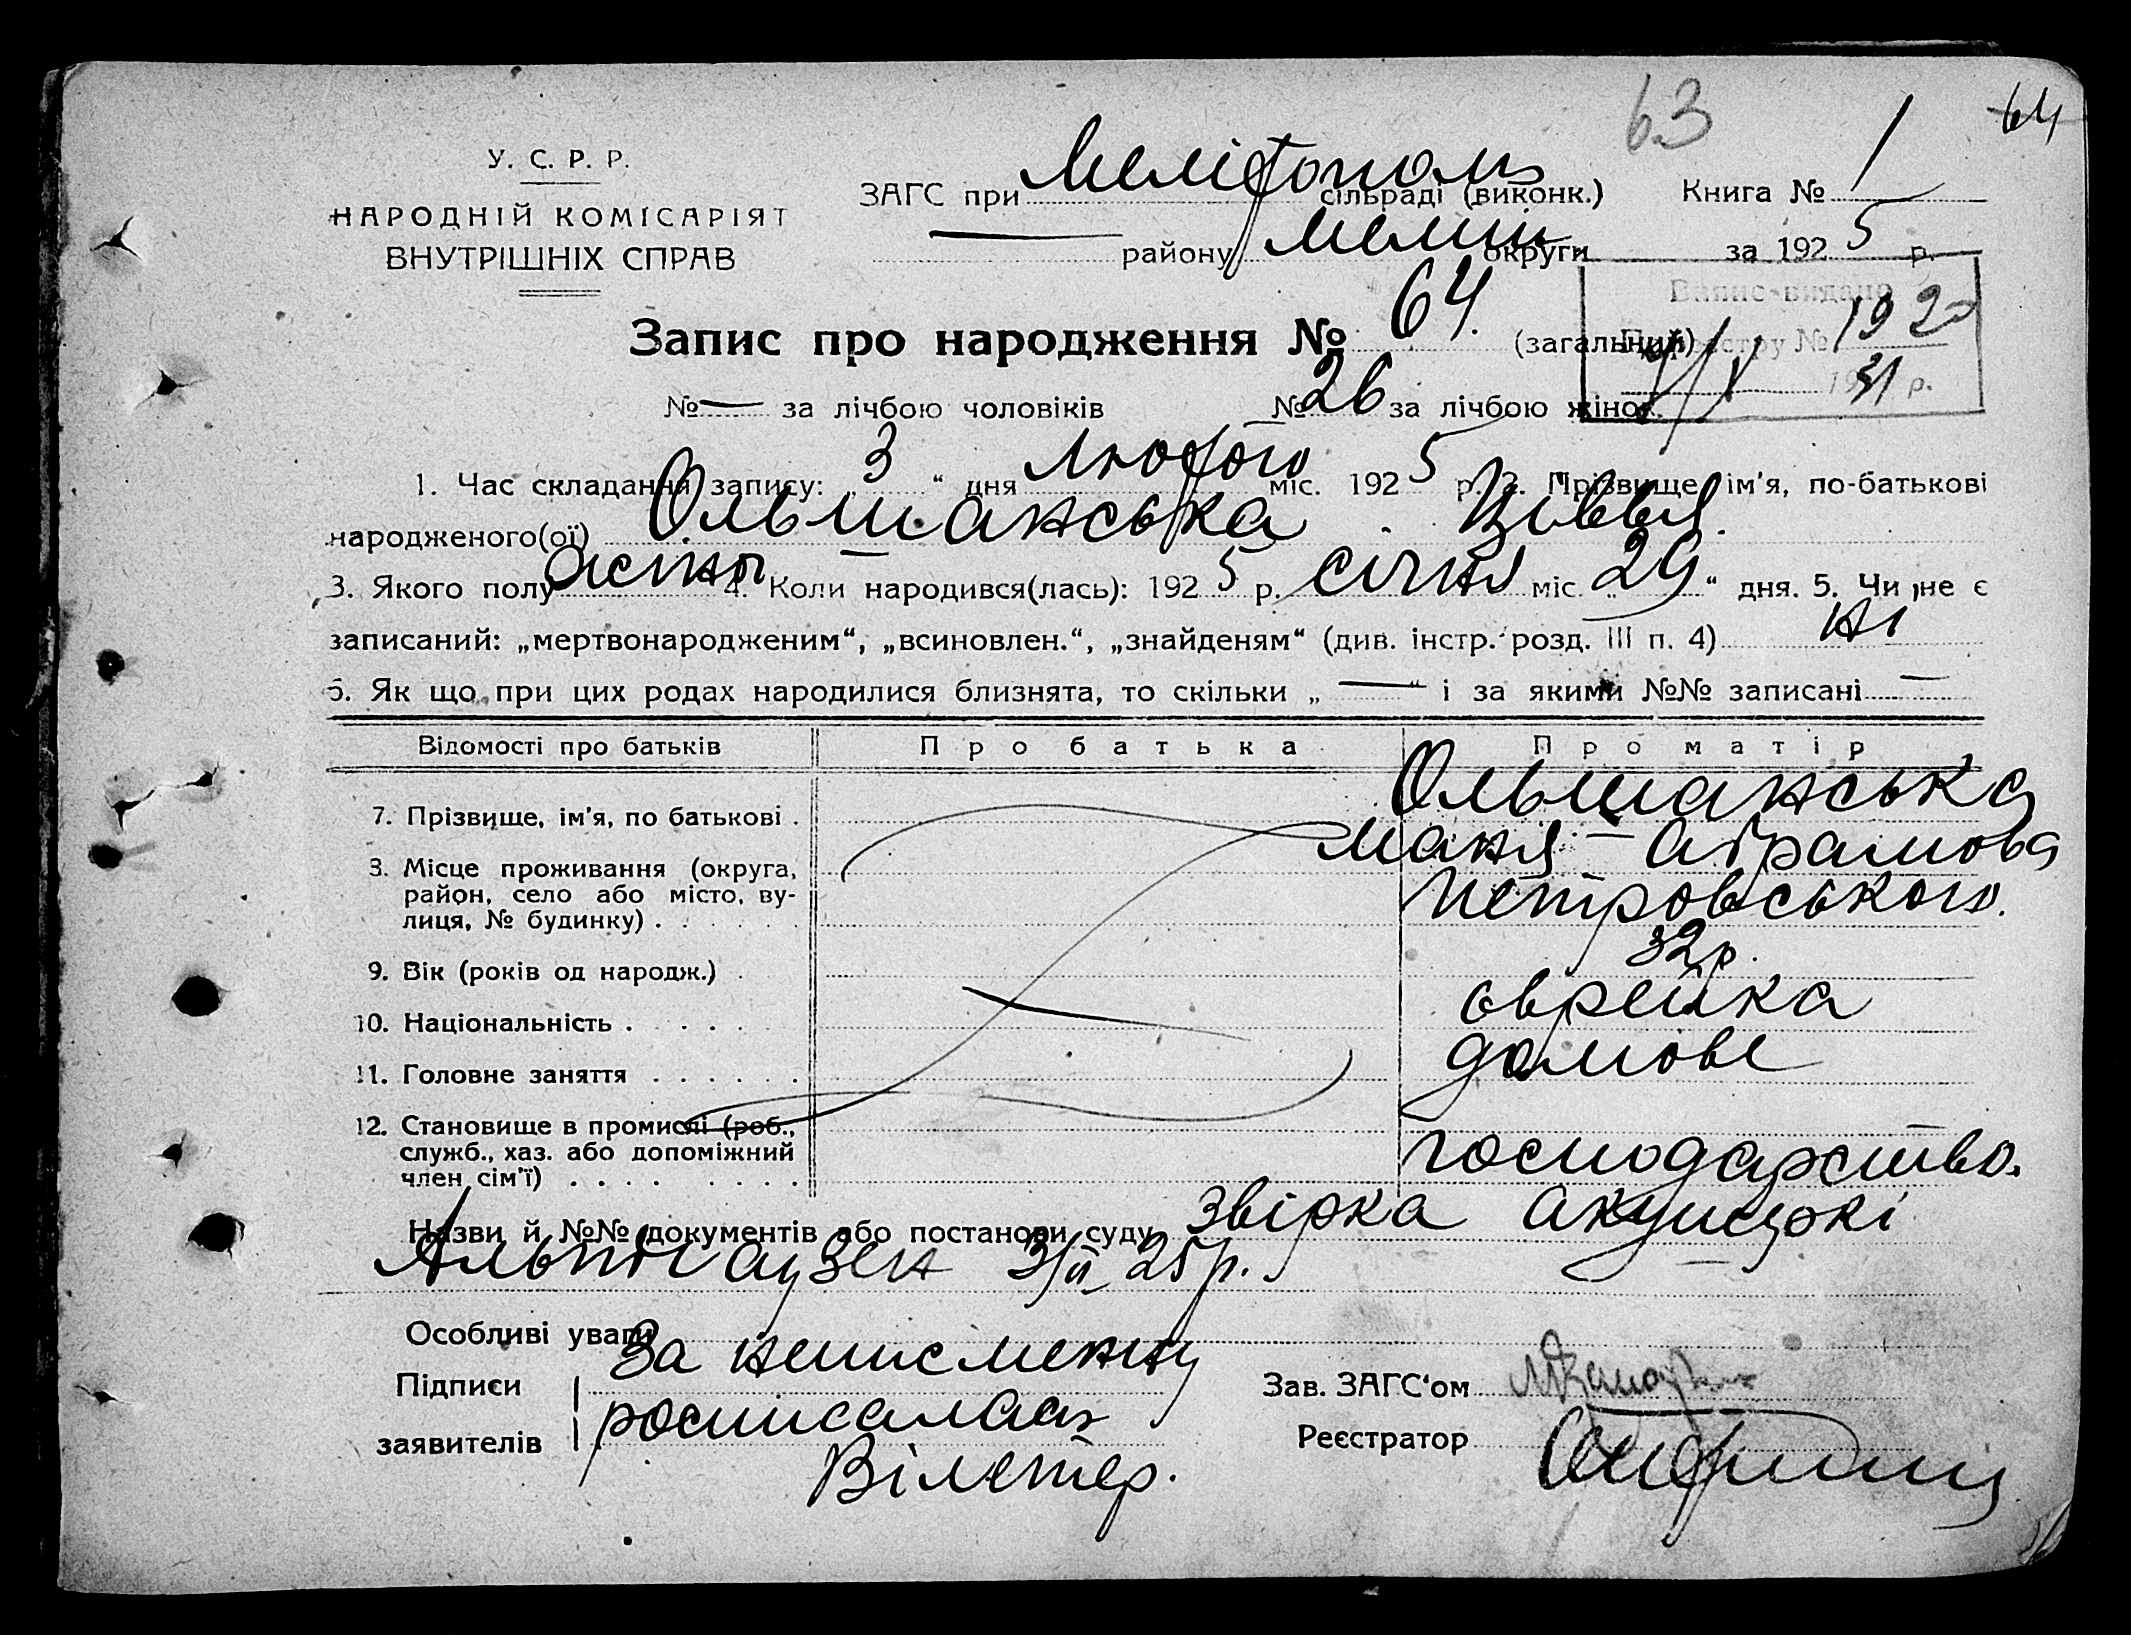 63
64
У. С. Р. Р.
НАРОДНІЙ КОМІСАРІЯТ
ВНУТРІШНІХ СПРАВ
ЗАГС при Мелітополь сільраді (виконк.) Книга № 1
— району Меліт округи за 1925 р.
Випис видано
По реєстру № 192
4/X 1931 р.
Запис про народження № 64. (загальний)
№ — за лічбою чоловіків № 26 за лічбою жінот.
1. Час складання запису: „ 3 “ дня Лютого міс. 1925 р. 2. Прізвище, ім'я, по-батькові
народженого(ої) Ольшанська
3. Якого полу жіноч 4. Коли народився(лась): 1925 р. січня міс. „ 29 “ дня. 5. Чи не є
записаний: „мертвонародженим“, „всиновлен.“, „знайденям“ (див. інстр. розд. III п. 4) ні
6. Як що при цих родах народилися близнята, то скільки „ — “ і за якими №№ записані —
Відомості про батьків Про батька Про матір
7. Прізвище, ім'я, по батькові . Ольшанська
Маня Абрамова
8. Місце проживання (округа,
район, село або місто, ву-
лиця, № будинку) . . . . . Петровського.
9. Вік (років од народж.) . 32 р.
10. Національність . . . . . — єврейка
11. Головне заняття . . . . . . домове
12. Становище в промислі (роб.,
служб., хаз. або допоміжний
член сім'ї) . . . . . . . . господарство.
Назви й №№ документів або постанови суду звірка акушерки
Альтгаузен 3/II 25 р.
Особливі уваги
Підписи
заявителів
За неписменну
росписалась
Зав. ЗАГС'ом
Реєстратор